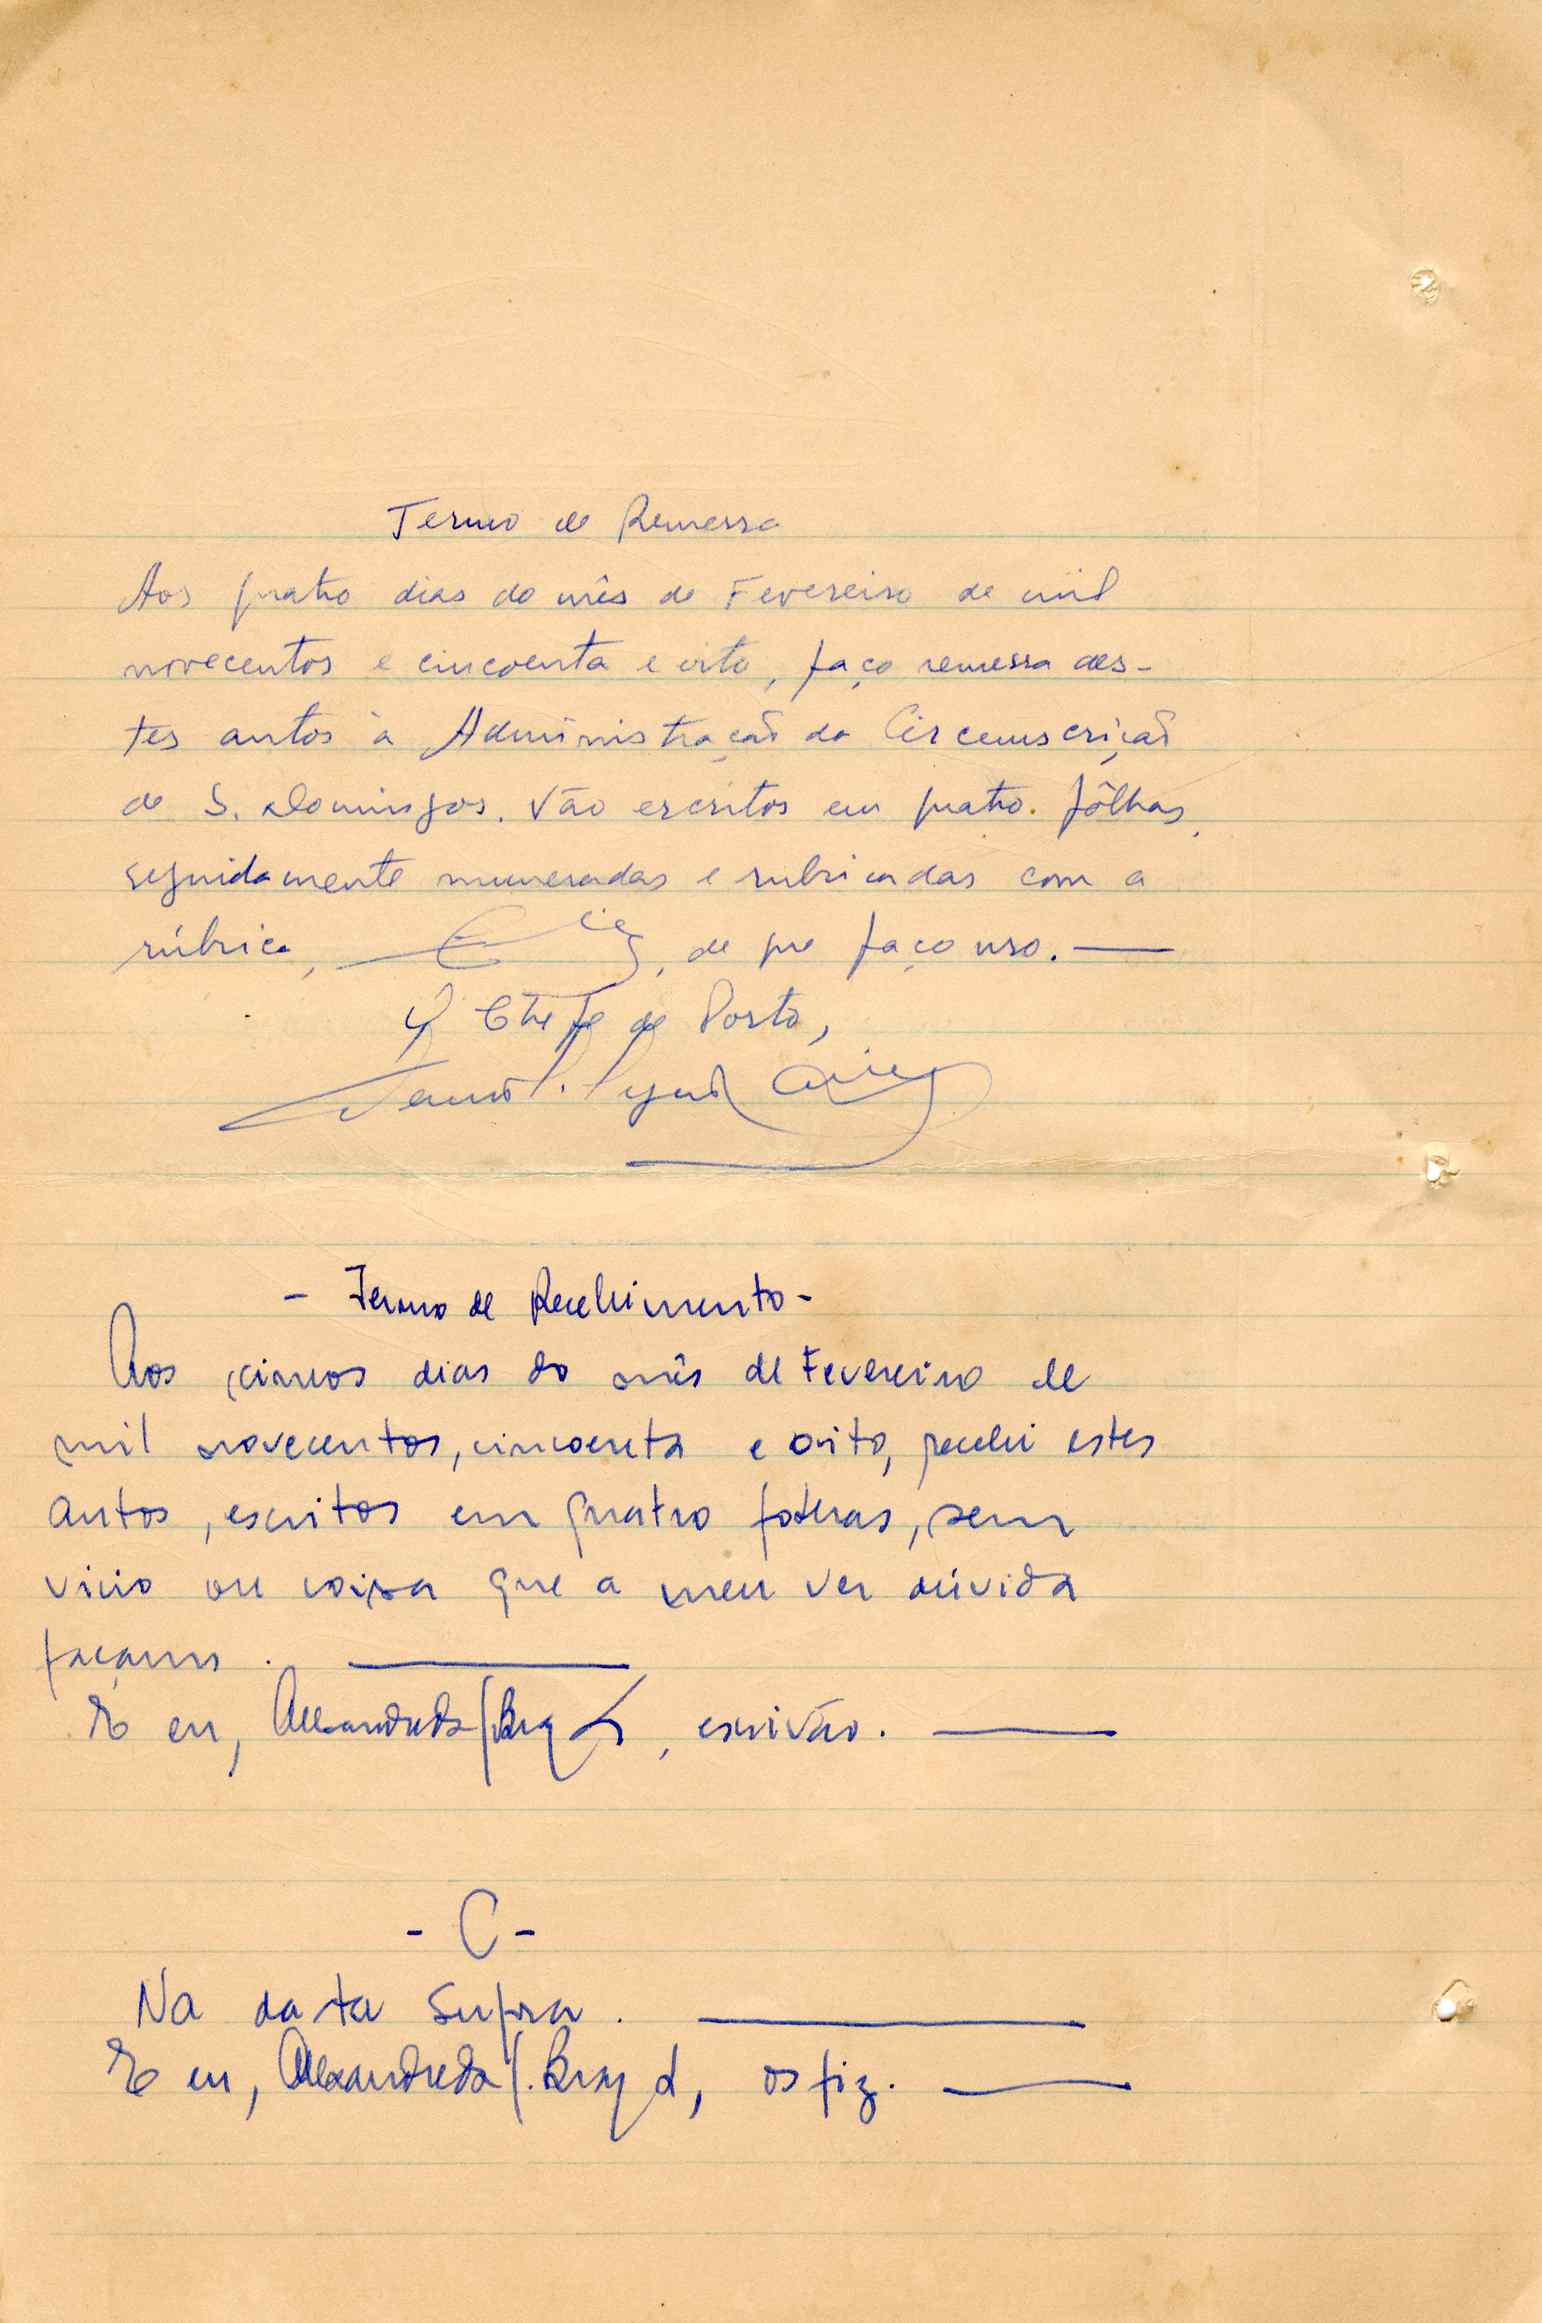 Termo de Remessa
Aos quatro dias do mês de Fevereiro de mil
novecentos e cincoenta e oito, faço remessa des-
tes autos à Administração da Circunscrição
de S. Domingos. Vão escritos em quatro fôlhas,
seguidamente numeradas e rubricadas com a
rúbrica, , de que faço uso.
O Chefe de Posto,
- Termo de Recebimento -
Aos cincos dias do mês de Fevereiro de
mil novecentos, cincoenta e oito, recebi estes
autos, escritos em quatro folhas, sem
vicio ou coisa que a meu ver dúvida
façam.
E eu, , escrivão.
- C -
Na data supra.
E eu, , os fiz.